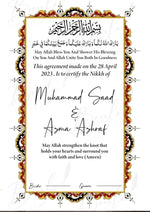 بِسْمِ اللهِ الرَّحْمٰنِ الرَّحِيْمِ
بَارَكَ اللهُ لَكَ وَبَارَكَ عَلَيْكَ وَجَمَعَ بَيْنَكُمَا فِي خَيْرٍ
May Allah Bless You And Shower His Blessing
On You And Allah Unite You Both In Goodness
This agreement made on the 28 April
2023 , Is to certify the Nikkh of
Muhammad Saad
&
Asma Ashraf
May Allah strengthen the knot that
holds your hearts and surround you
with faith and love (Ameen)
Bride Groom